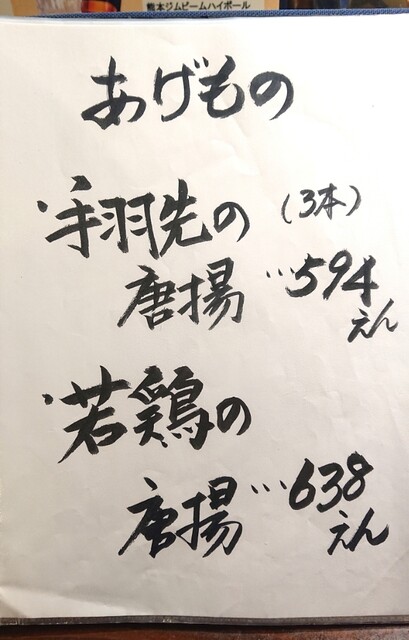 熊本ジムビームハイボール
あげもの
・手羽先の (3本)
唐揚 …594
えん
・若鶏の
唐揚 …638
えん